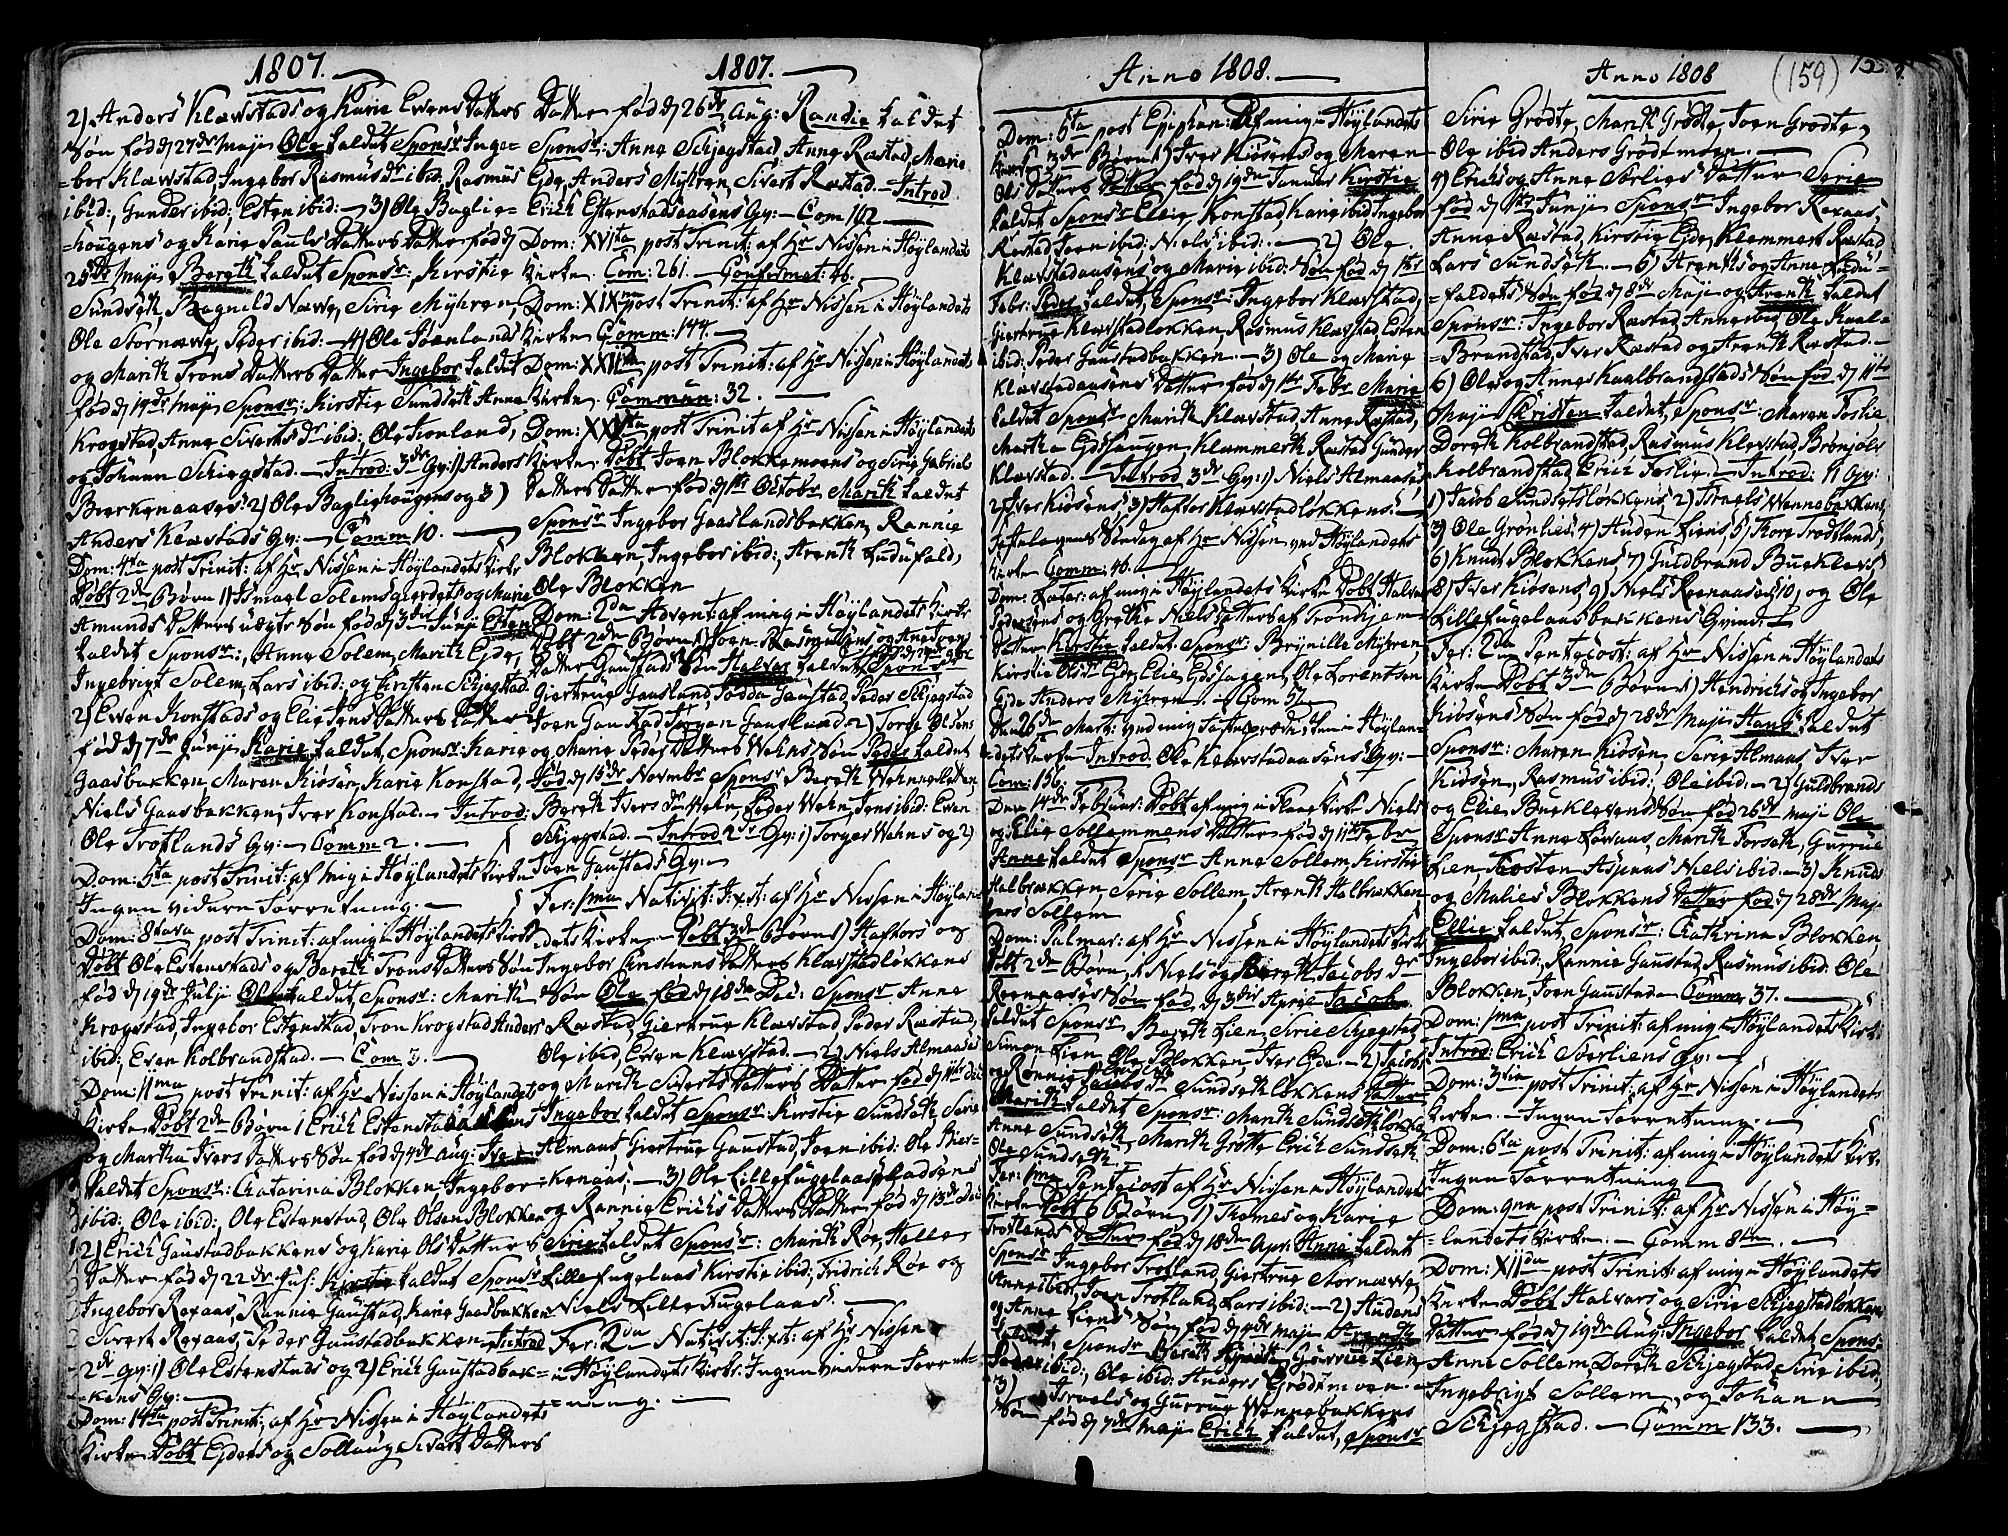 1807.
2) Anders Klævstads og Karie Ewens Datters
Søn fød d 27de Maji Ole kaldet Sponsr Inge=
=bor Klævstad, Ingebor Rasmusdr ibid, Rasmus
ibid: Gunder ibid; Esten ibid: 3) Ole Baglie=
=hougens og Karie Pauls Datters Datter fød d
25de Maji Bereth kaldet Sponsr: Kirstie
Sundseth, Ragnild Næwe, Sirie Myhren,
Ole Stornæwe, Peder ibid: 4) Ole Joenlands
og Marith Trons Datters Datter Ingebor kaldet
fød d 19de Maji Sponsr: Kirstie Sundseth Anne
Krogstad, Anne Siverts dr ibid: Ole
og Johann Schjegstad. Introd: 3de Qv: 1) Anders
Bierkenaases 2) Ole Bagliehougens og 3)
Anders Klævstads Qv: Comm 10.
Dom: 4ta post Trinit: af Hr Nissen i Høylandets Kirke
Døbt 2de Børn 1) Ismael Solemsgierdets og Marie
Amunds Datters uægte Søn fød d 3die Junj Esten
kaldet Sponsr:, Anne Solem, Marith Eyde,
Ingebrigt Solem, Lars ibid: og Kirsten Schjegstad
2) Ewen Konstads og Elie Jens Datters Datter
fød d 7de Junj Karie kaldet, Sponsr: Karie
Gaasbakken, Maren Kiøsen, Karie Konstad,
Niels Gaasbakken, Iver Konstad. Introd:
Ole Trotlands Qv: Comm 2.
Dom: 5ta post Trinit: af mig i Høylandets Kirke
Ingen videre Forretning.
Dom: 8tava post Trinit: af mig i Høylandets Kirke
Døbt Ole Estenstads og Bereth Trons Datters Søn
fød d 19de Julj kaldet, Sponsr: Marith
Krogstad, Ingebor Estenstad, Tron Krogstad Anders
ibid:, Even Kolbrandstad. Com 3.
Dom: 11ma post Trinit: af Hr Nissen i Høylandets
Kirke Døbt 2de Børn 1 Erich Estenstad
og Martha Ivers Datters Søn fød d 4de Aug: Iver
kaldet Sponsr: Catarina Blokken, Ingebor
ibid:, Ole ibid:, Ole Estenstad, Ole Olsen Blokken
2) Erich Gaustadbakkens og Karie Ols Datters
Datter fød d 22de Jul: Kirstie kaldet Sponsr
Ingebor Rexaas, Rannie Gaustad, Karie Gaasbakken
Sivert Rexaas, Peder Gaustadbakken Introd
2de Qv: 1) Ole Estenstads og 2) Erich Gaustadbak=
=kens Qv:
Dom: 14ta post Trinit: af Hr Nissen i Høylandets
Kirke Døbt Ejders og Sollaug Sivert Datters
1807.
Datter fød d 26de Aug: Randie kaldet
Sponsr: Anne Schjegstad, Anne Ræstad, Marie
Eyde, Anders Myhren, Sivert Ræstad. Introd
Erich Estenstadaasens Qv: Com 102
Dom: XVIta post Trinit: af Hr Nissen i Høylandets
Kirke Com: 261. Confirmat: 46.
Dom: XIXna post Trinit: af Hr Nissen i Høylandets
Kirke Comm: 144.
Dom: XXIIda post Trinit: af Hr Nissen i Høylandets
Kirke. Commun: 32.
Dom: XXVta post Trinit af Hr Nissen i Høylandets
Kirke Døbt Joen Blokkemoens og Sirie Gabriels
Datters Datter fød d 1ste Octobr Marith kaldet
Sponsr Ingebor Gaaslandsbakken, Rannie
Blokken, Ingebor ibid:, Arenth Ludufald,
Ole Blokken
Dom: 2da Advent: af mig i Høylandets Kirke
Døbt 2de Børn 1) Joen Rasmussens og Ane
Datter Gaustads Søn Halvar kaldet Sponsr
Giertrue Gaasland, Gaustad, Peder Schjegstad
Joen Gaustad Jørgen Gaasland 2) Torge Olsens
og Marie Peders Datters Wehns Søn Peder kaldet
fød d 15de Novmbr Sponsr Bereth Wehnesletten,
Bereth Ivers dr Wehn, Peder Wehn, Jens ibid: Even
Schjegstad. Introd 2de Qv: 1) Torger Wehns og 2)
Joen Gaustads Qv:
Fer: 1ma Nativit: Jxst: af Hr Nissen i Høylan
dets Kirke Døbt 3de Børn 1) Hafkors og
Ingebor Christens Datters Klævstadløkkens
Søn Ole fød d 18de Dec: Sponsr Anne
Ræstad, Giertrue Klævstad, Peder Ræstad,
Ole ibid, Ewen Klævstad. 2) Niels Almaases
og Marith Siverts Datters Datter fød d 11te Dec
Ingebor kaldet Sponsr: Kirstie Sundseth Serie
Almaas, Giertrue Gaustad, Joen ibid: Ole Bier=
=kenaas, 3) Ole Lillefugelaaspladsens
og Rannie Erichs Datters Datter fød d 13de Dec
Sirie kaldet Sponsr: Marith Røe, Helle
Lillefugelaas Kirstie ibid:, Fridrich Røe og
Niels Lillefugelaas.
Fer: 2da Nativit: Jxst: af Hr Nissen
i Høylandets Kirke: Ingen videre Forret=
=ning.
Anno 1808.
Dom: 5ta post Epiphan: af mig i Høylandets
Kirke 3de Børn 1) Iver Kiøsens og Maren
Ols Datters Datter fød d 19de Januar Kirstie
kaldet Sponsr Elie Konstad, Karie ibid Ingebor
Ræstad, Joen ibid:, Niels ibid: 2) Ole
Klævstadaasens og Marie ibid: Søn fød d 1ste
Febr: Peder kaldet, Sponsr: Ingebor Klævstad,
Giertrue Klævstadløkken, Rasmus Klævstad Esten
ibid: Peder Gaustadbakken. 3) Ole og Marie
Klævstadaasens Datter fød d 1ste Febr Marie
kaldet Sponsr Marith Klævstad, Anne Ræstad,
Martha Eydshaugen, Klammeth Ræstad Gunder
Klævstad. Introd 3de Qv: 1) Niels Almaases
2) Iver Kiøsens, 3) Haftor Klævstadløkkens.
Fastelagens Søndag af Hr Nissen ved Høylandets
Kirke Comm: 46.
Dom: Lætar: af mig i Høylandets Kirke Døbt Halvar
Pedersens og Grethe Niels Datters af Trondhjem
Datter Kirstie kaldet Sponsr: Brynille Myhren,
Kirstie Olsdr Eyde, Elie Eydshagen, Ole Lorentsen
Eyde Anders Myhren. Com 57.
Den 26de Marti ved mig Fasteprædiken i Høylan=
=dets Kirke Introd. Ole Klævstadaasens Qv:
Com: 156.
Den 14de Februar: Døbt af mig i Flaae Kirke Niels
og Elie Sollemmens Datter fød d 11te Febr
Anne kaldet Sponsr Anne Sollem, Kirstie
Halbrækken, Serie Sollem, Arenth Halbrækken
Lars Sollem
Dom: Palmar: af Hr Nissen i Høylandets Kirke
Døbt 2de Børn, 1 Niels og Bereth Jacobs dr
Reenaases Søn fød d 3die April Jacob
kaldet Sponsr Bereth Lien, Sirie Schjegstad,
Simon Lien, Ole Blokken, Iver Eyde. 2) Jacobs
og Rannie Jacobs dr Sundsethløkkens Datter
Marith kaldet Sponsr: Marith Sundsethløkken
Anne Sundseth, Marith Grøtte, Erich Sundseth
Ole Sundseth.
Fer: 1ma Pentecost af Hr Nissen i Høylandets
Kirke Døbt 6 Børn, 1) Thomes og Karie
Trotlands Datter fød d 18de Apr: Anne kaldet
Sponsr Ingebor Trotland, Giertrue Stornæwe,
Anne ibid, Joen Trotland, Lars ibid: 2) Audens
og Anne Liens Søn fød d 4de Maji Arenth
kaldet, Sponsr Bereth Gurrue Lien,
Peder ibid:, Ole ibid: Anders Grødtmoen.
3) Israels og Gurrue Wennebakkens
Søn fød d 7de Maji Erich kaldet, Sponsr
Anno 1808
(159)
Sirie Grødte, Marith Grødte, Joen Grødte,
Ole ibid Anders Grødtmoen.
4) Erichs og Anne Sørlies Datter Serie
fød d 1ste Junji Sponsr Ingebor Rexaas,
Anne Ræstad, Kirstie Eyde, Klemmeth Ræstad
Lars Sundseth. 5) Arenths og Anne Ludu=
=faldets Søn fød d 8de Maji og Arenth kaldet
Sponsr: Ingebor Ræstad Anne ibid, Ole Kaal=
=Brandstad, Iver Ræstad og Arenth Ræstad.
6) Ole og Anne Kaalbrandstads Søn fød d 11te
Maji Christen kaldet, Sponsr: Maren Foslie
Doreth Kolbrandstad, Rasmus Klevstad, Brønjolv
Kolbrandstad, Erich Foslie. Introd: 11 Qv:
1) Jacob Sundsetsløkkens, 2) Israels Wennebakkens,
3) Ole Grønlies, 4) Auden Liens, 5) Tore Trodtlands,
6) Knudt Blokkens, 7) Guldbrand Bueklevs
8) Iver Kiøsens, 9) Niels Reenaases, 10, og Ole
Lillefugelaasbakkens Qvind.
Fer: 2da Pentecost: af Hr Nissen i Høylandets
Kirke Døbt 3de Børn 1) Hendrichs og Ingebor
Kiøsens Søn fød d 28de Maji Hans kaldet
Sponsr: Maren Kiøsen, Sirie Almaas, Iver
Kiøsen, Rasmus ibid:, Ole ibid: 2) Guldbrands
og Elie Bueklevens Søn fød 26de Maji Ole
Sponsr Anne Løvaas, Marith Forseth, Gurrue
Lien Torsten Aspaas Niels ibid. 3) Knuds
og Malies Blokkens Datter fød d 28de Maji
Ellie kaldet, Sponsr: Cathrina Blokken
Ingebor ibid:, Rannie Gaustad, Rasmus ibid. Ole
Blokken, Joen Gaustad Comm: 37.
Dom: 1ma post Trinit: af mig i Høylandets Kirke
Introd: Erich Sørliens Qv:
Dom: 3tia post Trinit: af Hr Nissen i Høylandets
Kirke. Ingen Forretning.
Dom: 6ta post Trinit: af mig i Høylandets Kirke
Ingen Forretning
Dom: 9na post Trinit: af Hr Nissen i Høy=
=landets Kirke. Comm 8te.
Dom: XIIda post Trinit: af mig i Høylandets
Kirke Døbt Halvars og Sirie Schjegstadløkken
Datter fød d 19de Aug: Ingebor kaldet Spons:
Anne Sollem, Doreth Schjegstad, Sirie ibid,
Ingebrigt Sollem, og Johann
Schjegstad. Comm 133.